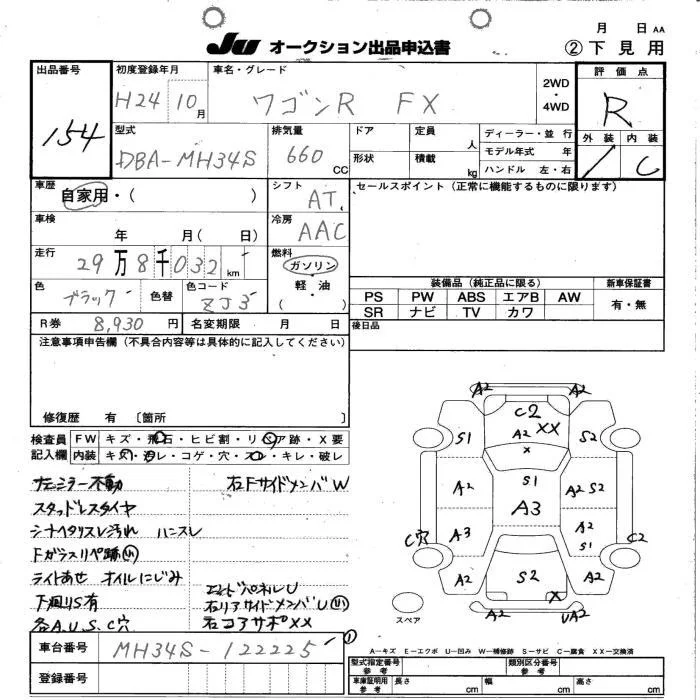 月 日 AA
JU オークション出品申込書 ②下見用
出品番号 初度登録年月 車名・グレード 2WD・4WD 評価点
154 H24 10月 ワゴンR FX R
型式 排気量 ドア 定員 人 ディーラー・並行 外装 内装
DBA-MH34S 660 CC 形状 積載 kg モデル年式 年 / C
ハンドル 左・右
車歴 シフト セールスポイント(正常に機能するものに限ります)
自家用・( ) AT
車検 冷房
年 月( 日) AAC
走行 燃料
29万8千032km ガソリン
色 色替 色コード 軽・油 装備品(純正品に限る) 新車保証書
ブラック ZJ3 ( ) PS PW ABS エアB AW 有・無
SR ナビ TV カワ
R券 8,930円 名変期限 月 日 後日品
注意事項申告欄(不具合内容等は具体的に記入してください)
修復歴 有 [箇所 ]
検査員 FW キズ・飛石・ヒビ割・リペア跡・X要
記入欄 内装 キズ・汚レ・コゲ・穴・スレ・キレ・破レ
サモニター不動 右FサイドメンバW
スタッドレスタイヤ
シートヘタリスレ汚れ ハンスレ
Fガラスリペ跡小
ライトあせ オイルにじみ
下廻りS有 エンドパネルU
各A.U.S.C穴 右リアサイドメンバU小
右コアサポXX
A2 A2
C2
A2 XX
S1 S2
X
A2 S1 A2 S2
A3
A3 A2
S1
C穴 C2
A2 S2 A2
X
スペア A2 UA2
A-キズ E-エクボ U-凹み W-補修跡 S-サビ C-腐食 XX-交換済
車台番号 MH34S-122225
登録番号
型式指定番号 参考 類別区分番号 参考
車庫証明用 参考 長さ cm 幅 cm 高さ cm